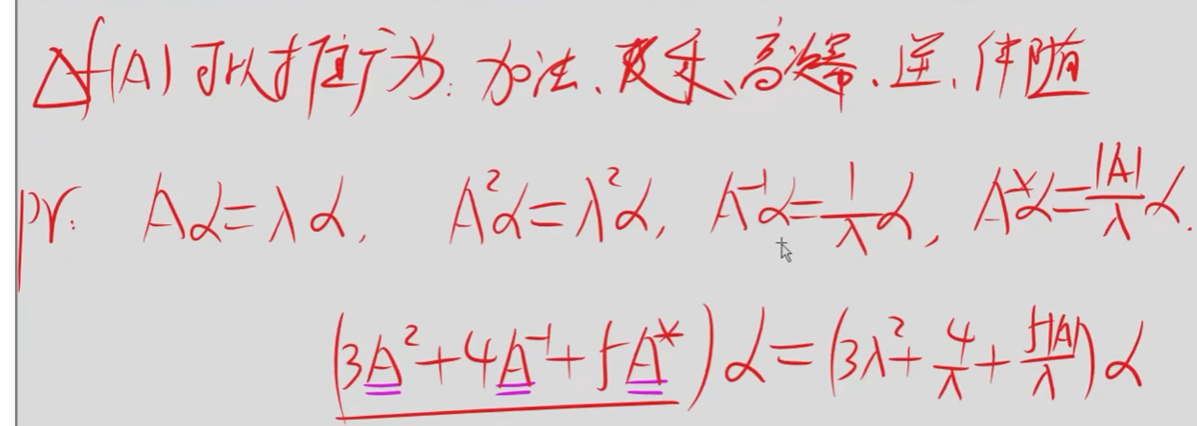 △f(A)可以才广为:加法、数乘、高次幂、逆、伴随
pr: Aα=λα, A²α=λ²α, A⁻¹α=1/λ α, A*α=|A|/λ α.
(3A²+4A⁻¹+5A*)α=(3λ²+4/λ+5|A|/λ)α